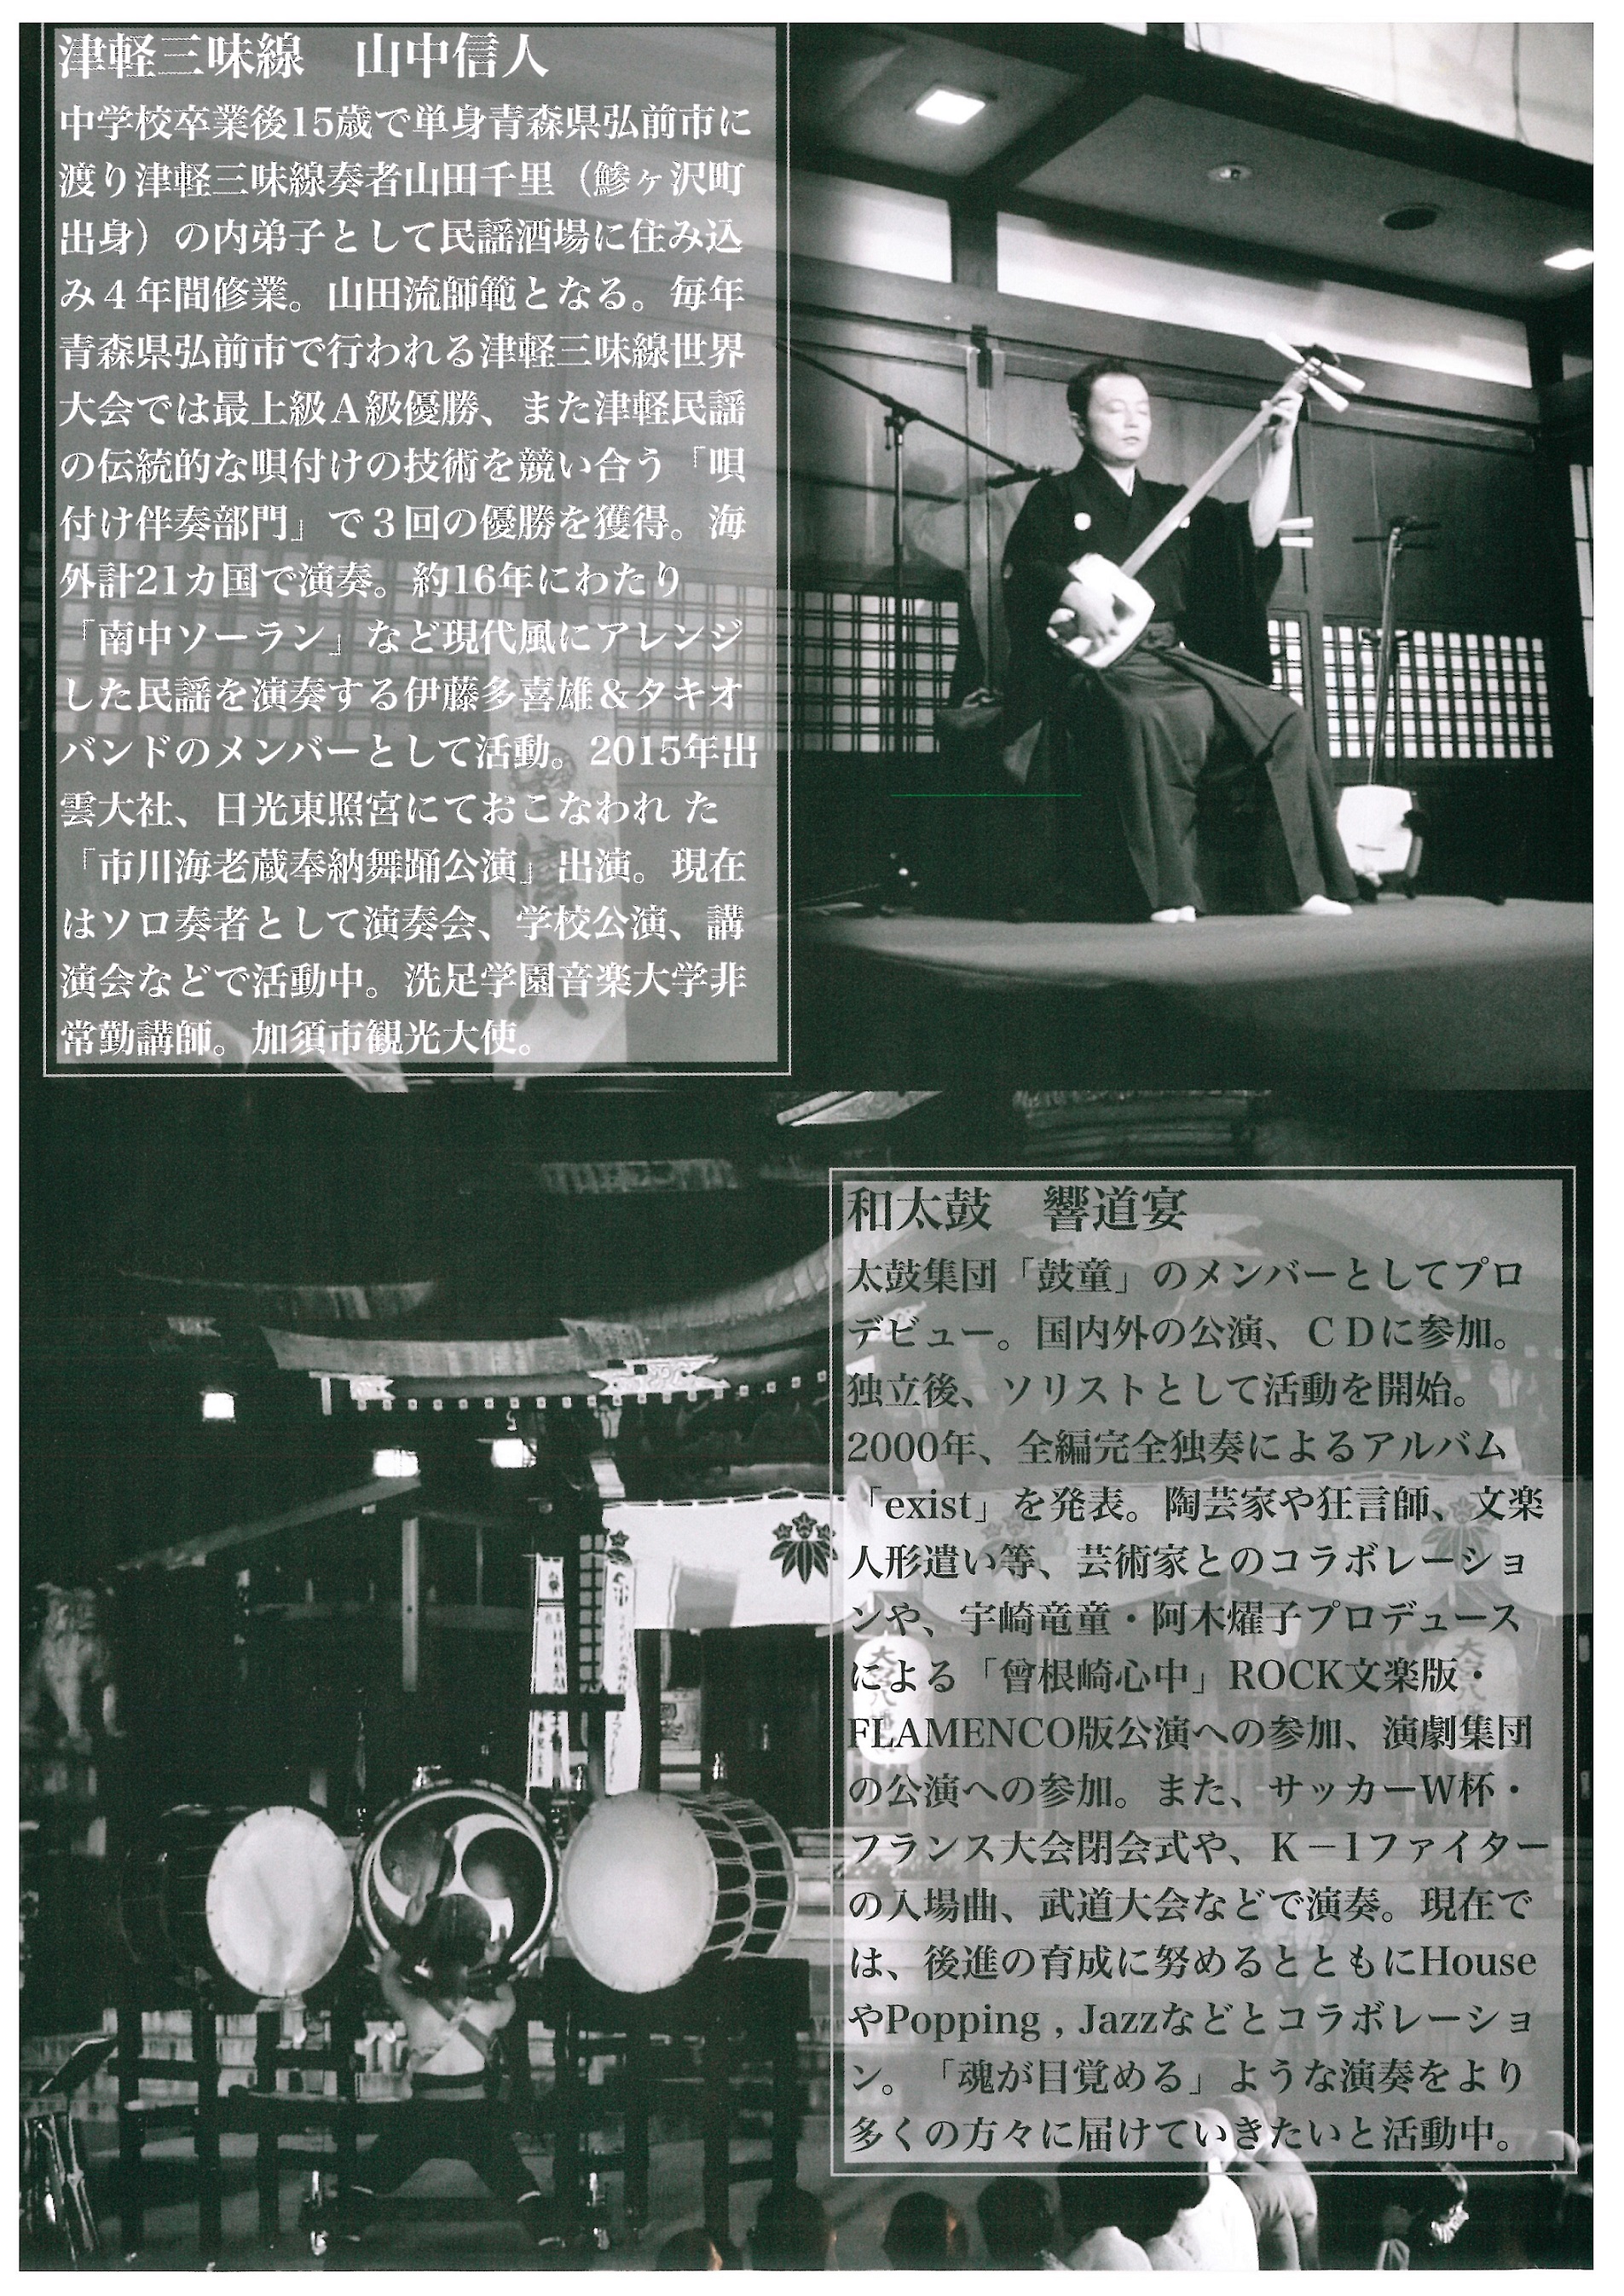 津軽三味線　山中信人
中学校卒業後15歳で単身青森県弘前市に
渡り津軽三味線奏者山田千里（鯵ヶ沢町
出身）の内弟子として民謡酒場に住み込
み４年間修業。山田流師範となる。毎年
青森県弘前市で行われる津軽三味線世界
大会では最上級Ａ級優勝、また津軽民謡
の伝統的な唄付けの技術を競い合う「唄
付け伴奏部門」で３回の優勝を獲得。海
外計21カ国で演奏。約16年にわたり
「南中ソーラン」など現代風にアレンジ
した民謡を演奏する伊藤多喜雄＆タキオ
バンドのメンバーとして活動。2015年出
雲大社、日光東照宮にておこなわれ た
「市川海老蔵奉納舞踊公演」出演。現在
はソロ奏者として演奏会、学校公演、講
演会などで活動中。洗足学園音楽大学非
常勤講師。加須市観光大使。
和太鼓　響道宴
太鼓集団「鼓童」のメンバーとしてプロ
デビュー。国内外の公演、ＣＤに参加。
独立後、ソリストとして活動を開始。
2000年、全編完全独奏によるアルバム
「exist」を発表。陶芸家や狂言師、文楽
人形遣い等、芸術家とのコラボレーショ
ンや、宇崎竜童・阿木燿子プロデュース
による「曾根崎心中」ROCK文楽版・
FLAMENCO版公演への参加、演劇集団
の公演への参加。また、サッカーW杯・
フランス大会閉会式や、Ｋ－1ファイター
の入場曲、武道大会などで演奏。現在で
は、後進の育成に努めるとともにHouse
やPopping , Jazzなどとコラボレーショ
ン。「魂が目覚める」ような演奏をより
多くの方々に届けていきたいと活動中。